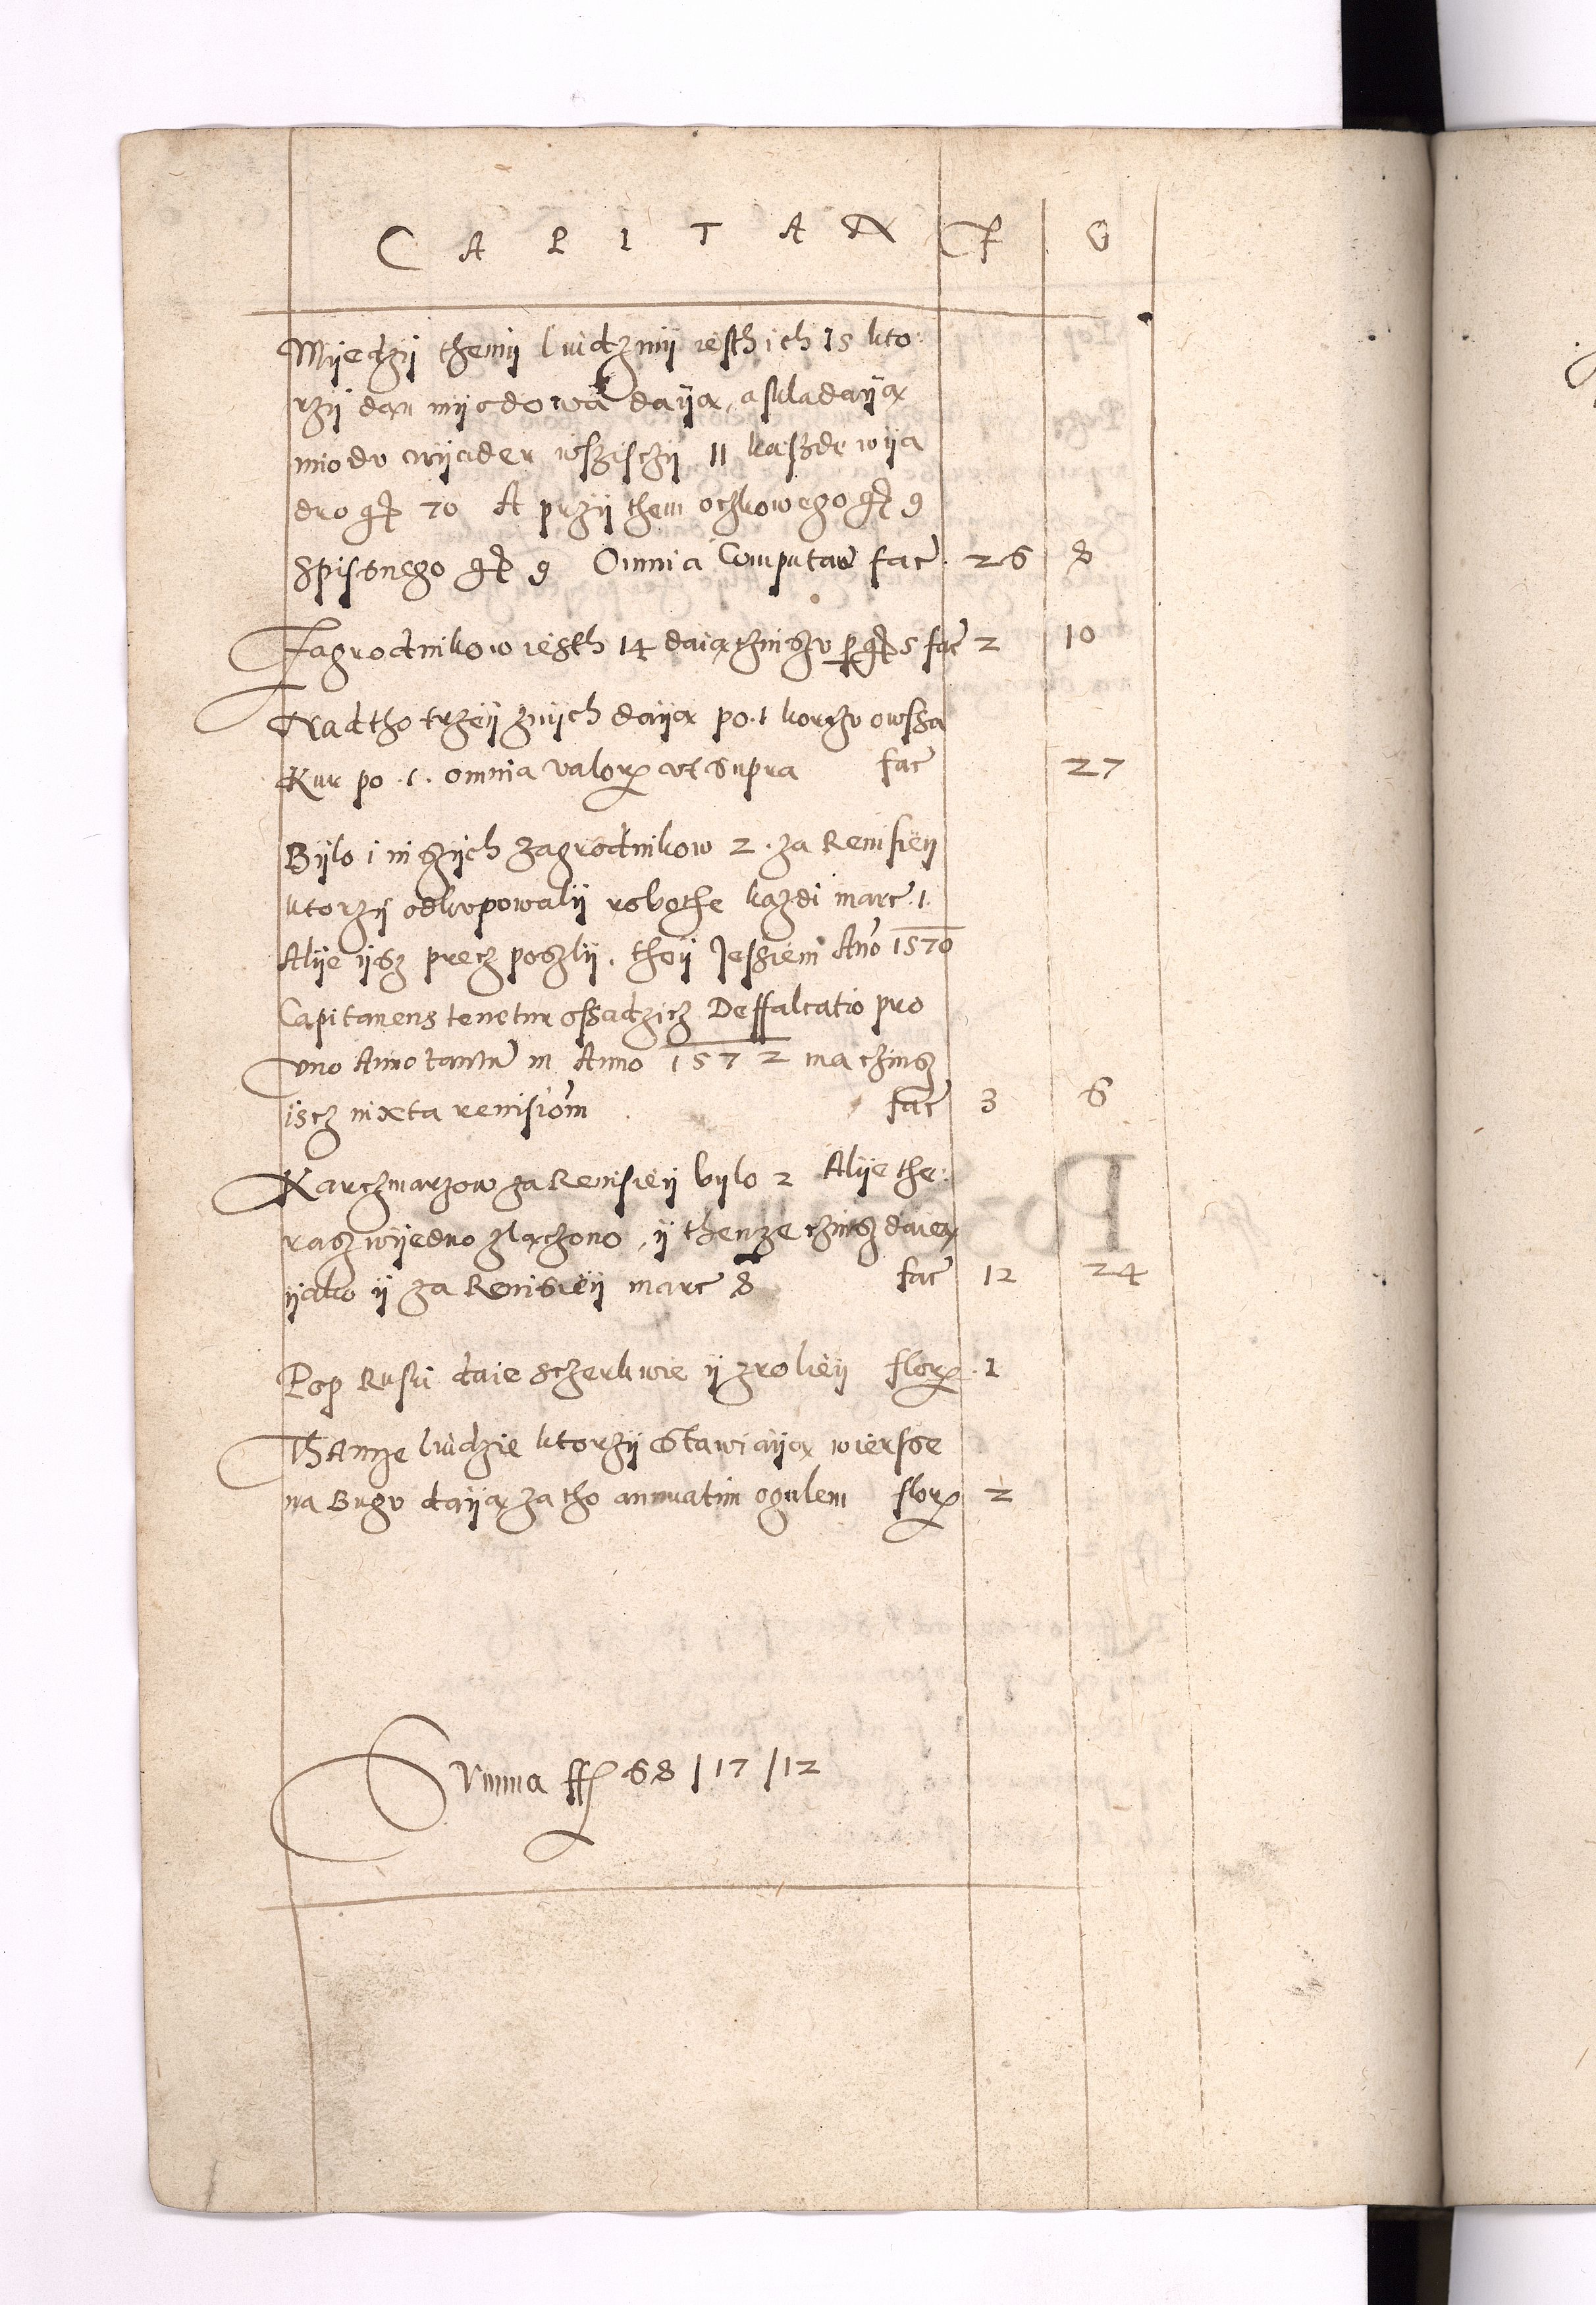 C A P I T A N F G
Myedzy themy ludzmy iesth ich 15 kto:
rzy dan myodową dayą, a skladayą
miodu wyader wszisczy 11 kaszde wya
dro gr 70 A przy them oczkowego gr 9
Spisnego gr 9 Omnia Computan fac 26 8
Zagrodnikow iesth 14 daią czinszu per gr 5 fac 2 10
Nadtho trzey znych dayą po .1 korczu owssa
Kur po .1. omnia valor ut supra fac 27
Bylo inszych zagrodnikow 2. za Reuisiey
ktorzy odkupowaly robothe kazdi marc .1.
Alye ysz precz poszly, they Jessieni Ano 1570
Capitaneus tenetur ossadzicz Deffalcatio pro
uno Anno tantu in Anno 1572 ma czinsz
iscz iuxta reuisiom fac 3 6
Karczmarzow za Reuisiey bylo 2 Alye the:
rasz wyedno zlączono, y thenze czinsz daią
yako y za Reuisiey marc 8 fac 12 24
Pop Ruski daie sczerkwie y zroliey flor .1
Thamze ludzie ktorzy stawiayą wiersse
na Bugu dayą za tho annuatim ogulem flor 2
Summa ff 68 / 17 / 12